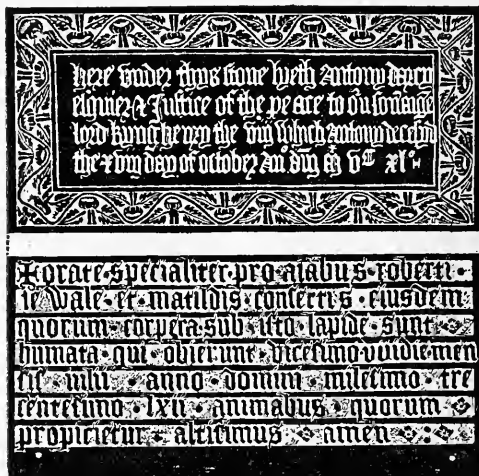 here vnder thys stone lyeth Antony Darcy
esquier & Justice of the peace to oū souerange
lord kyng henry the viij whych Antony decessyd
the xviij day of october Anᵒ dn̄i m̊ vᶜ xlᵒ
✠ orate · specialiter · pro · aīabus · roberti ·
le Wale · et · matildis · consortis · eiusdem
quorum · corpora · sub · isto · lapide · sunt
humata · qui · obierunt · vicesimo · v · die · men
sis · iulii · anno · domini · milesimo · tre
centesimo · lxii · animabus · quorum
propicietur · altisimus · amen